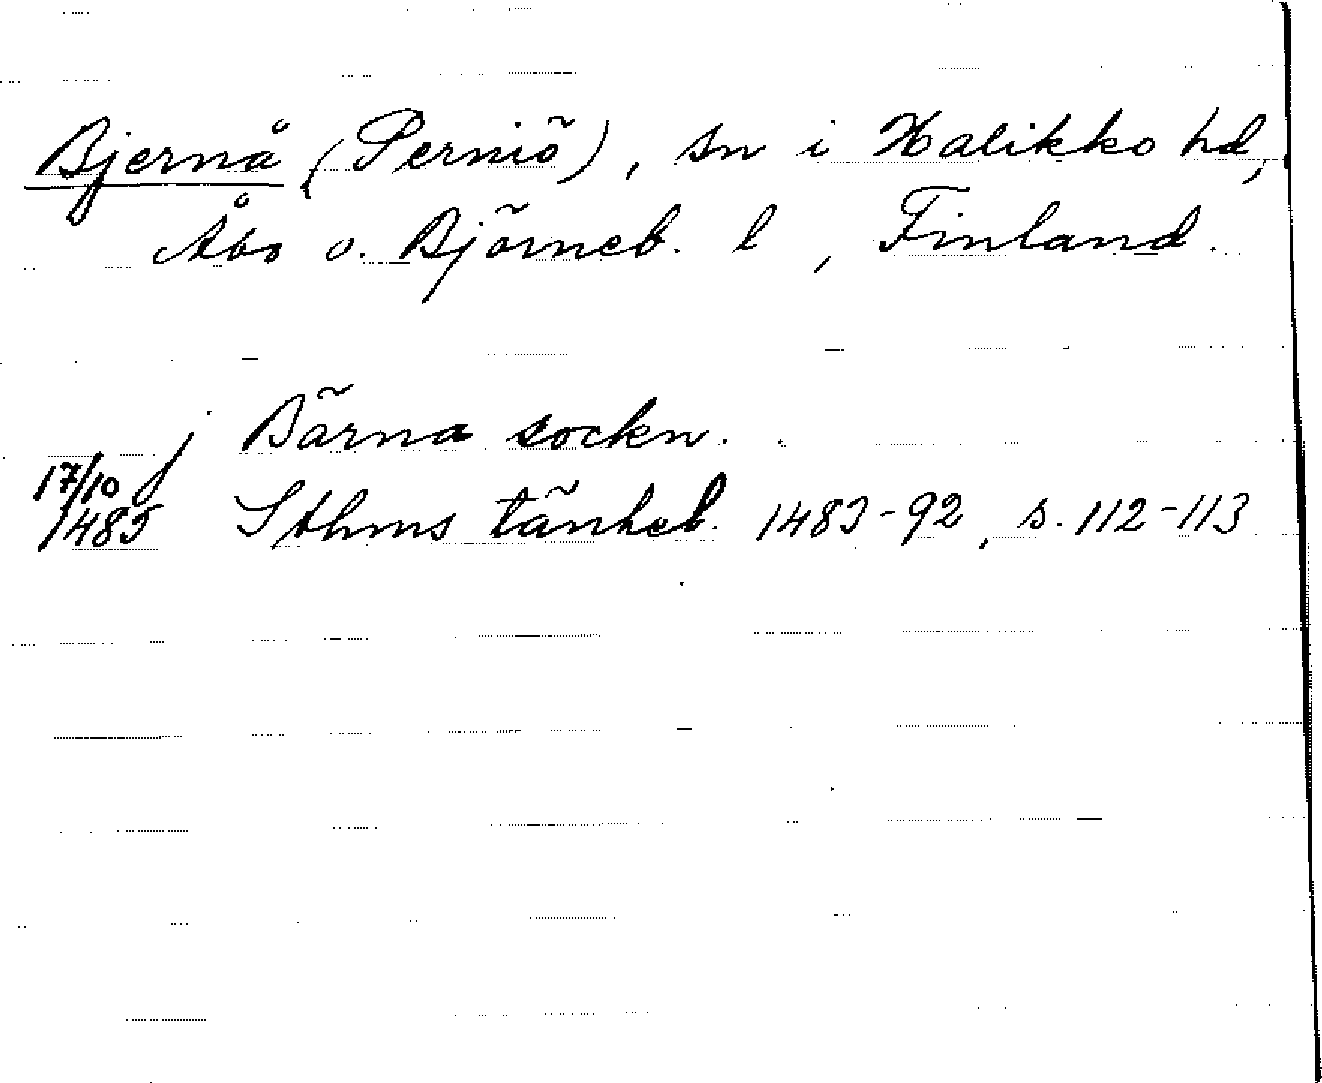 Bjernå (Perniö), sn i Halikko hd,
Åbo o. Björneb. l, Finland.
j Bärna sockn.
17/10 1485 Sthms tänkeb. 1483-92, s. 112-113